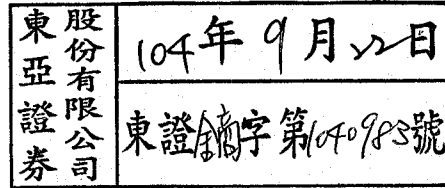 東亞證券
股份有限公司
104年9月22日
東證鏑字第1040983號